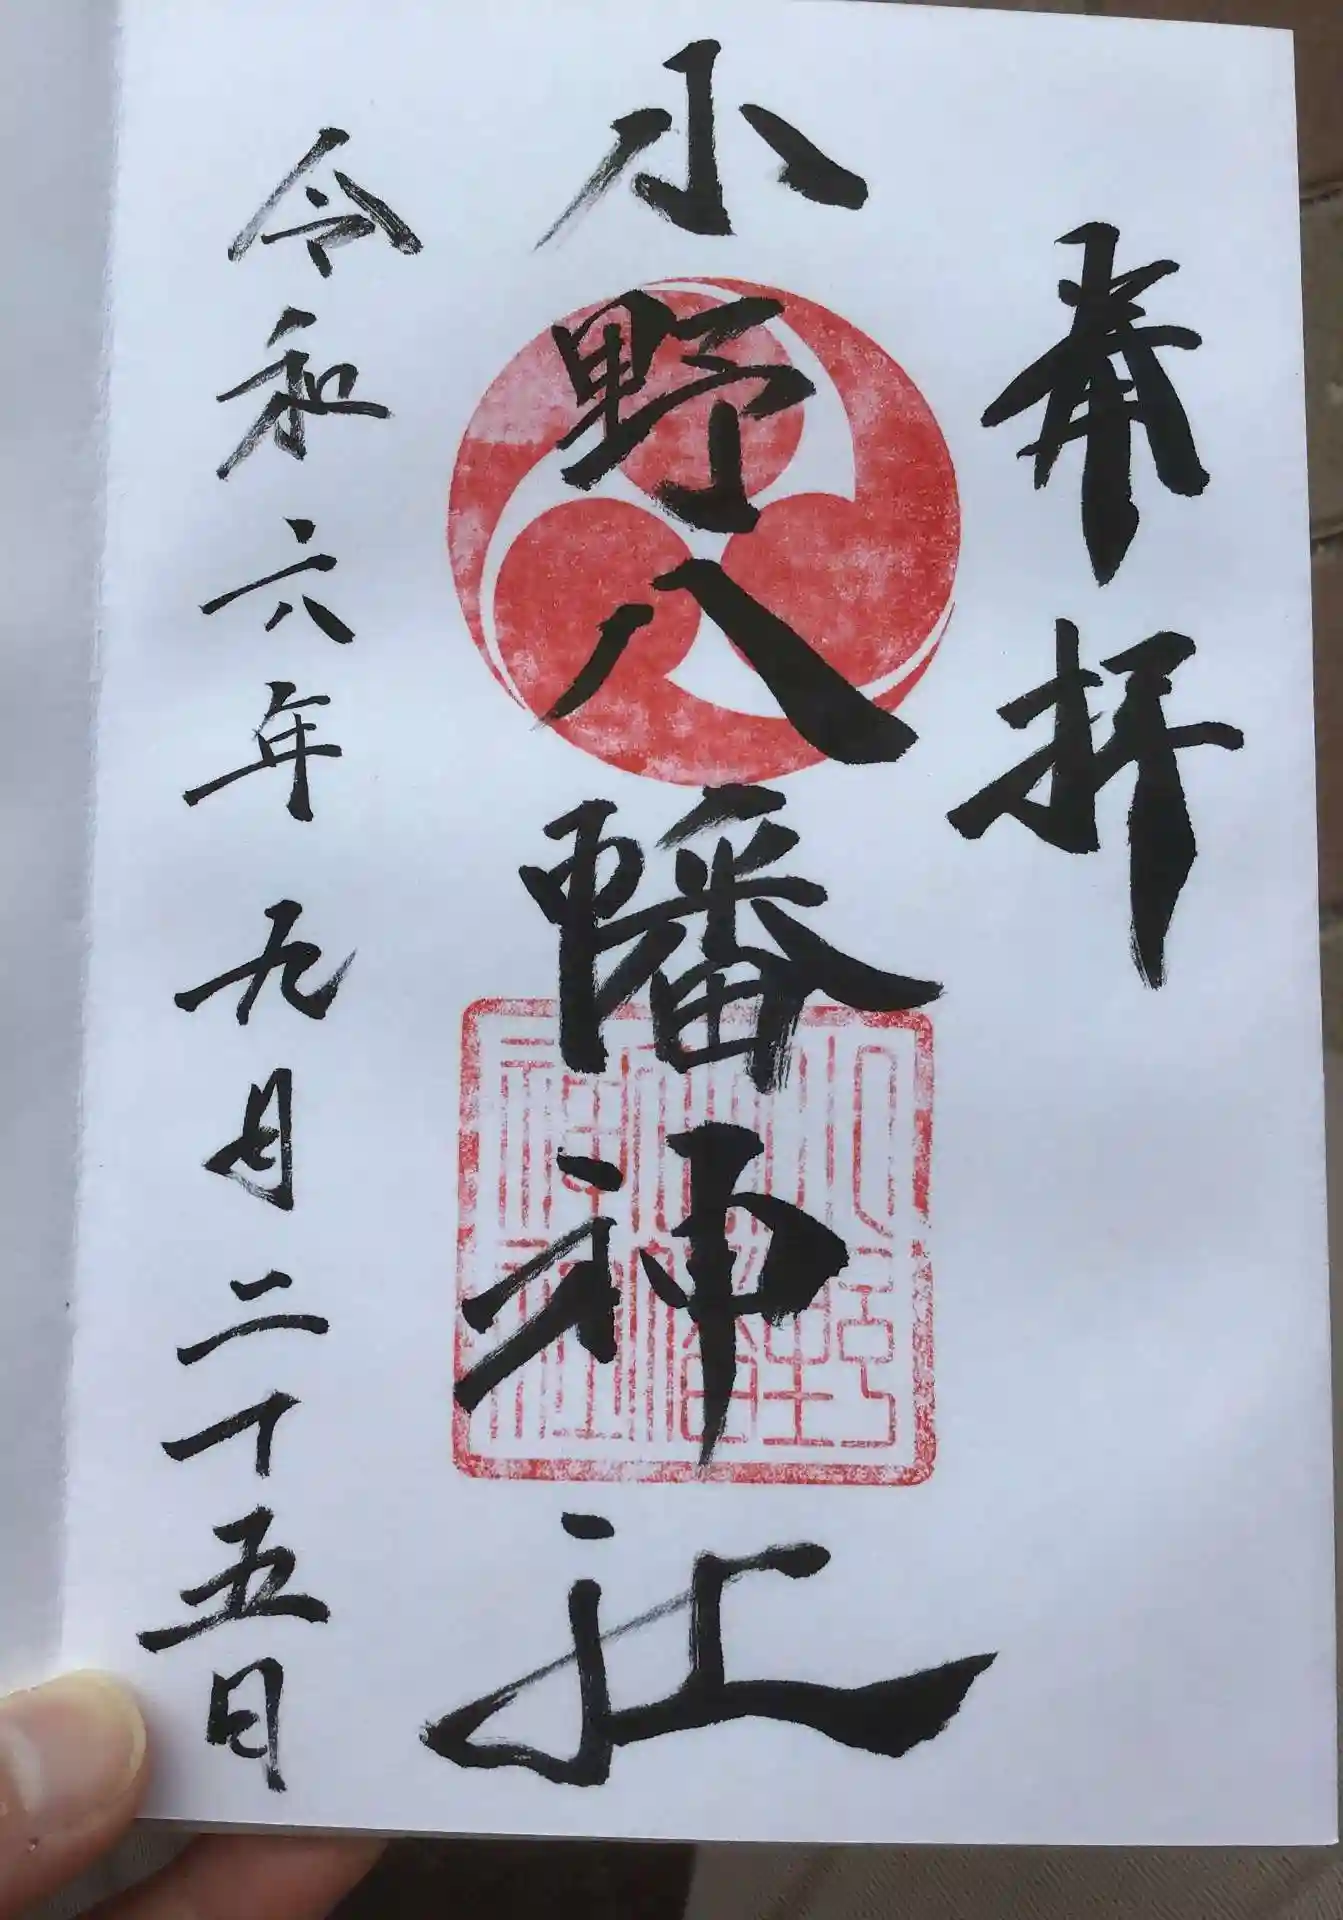 奉拝
小野八幡神社
令和六年九月二十五日
小野八幡神社